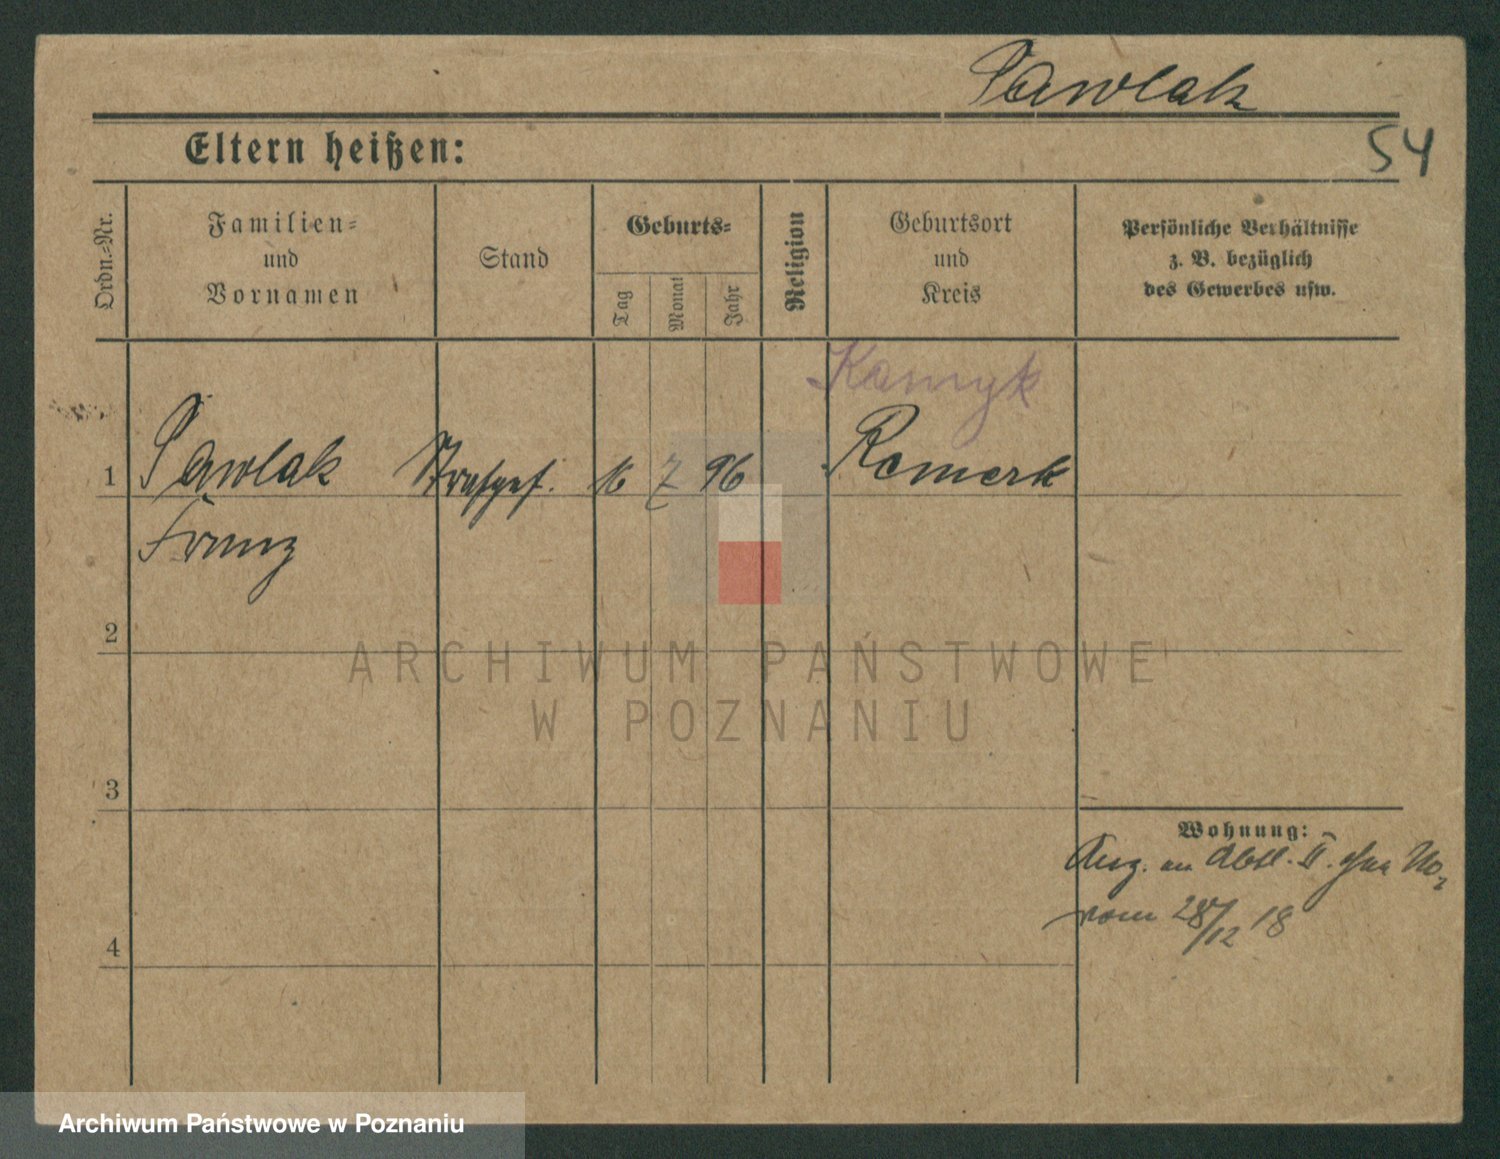 Pawlak
54
Eltern heißen:
Ordn.=Nr.
Familien=
und
Vornamen
Stand
Geburts=
Tag
Monat
Jahr
Religion
Geburtsort
und
Kreis
Persönliche Verhältnisse
z. B. bezüglich
des Gewerbes usw.
Kamyk
1
Pawlak
Strafgef.
16
7
96
Franz
2
3
4
Wohnung:
Abtl. II.
vom 28/12 18
ARCHIWUM PAŃSTWOWE
W POZNANIU
Archiwum Państwowe w Poznaniu